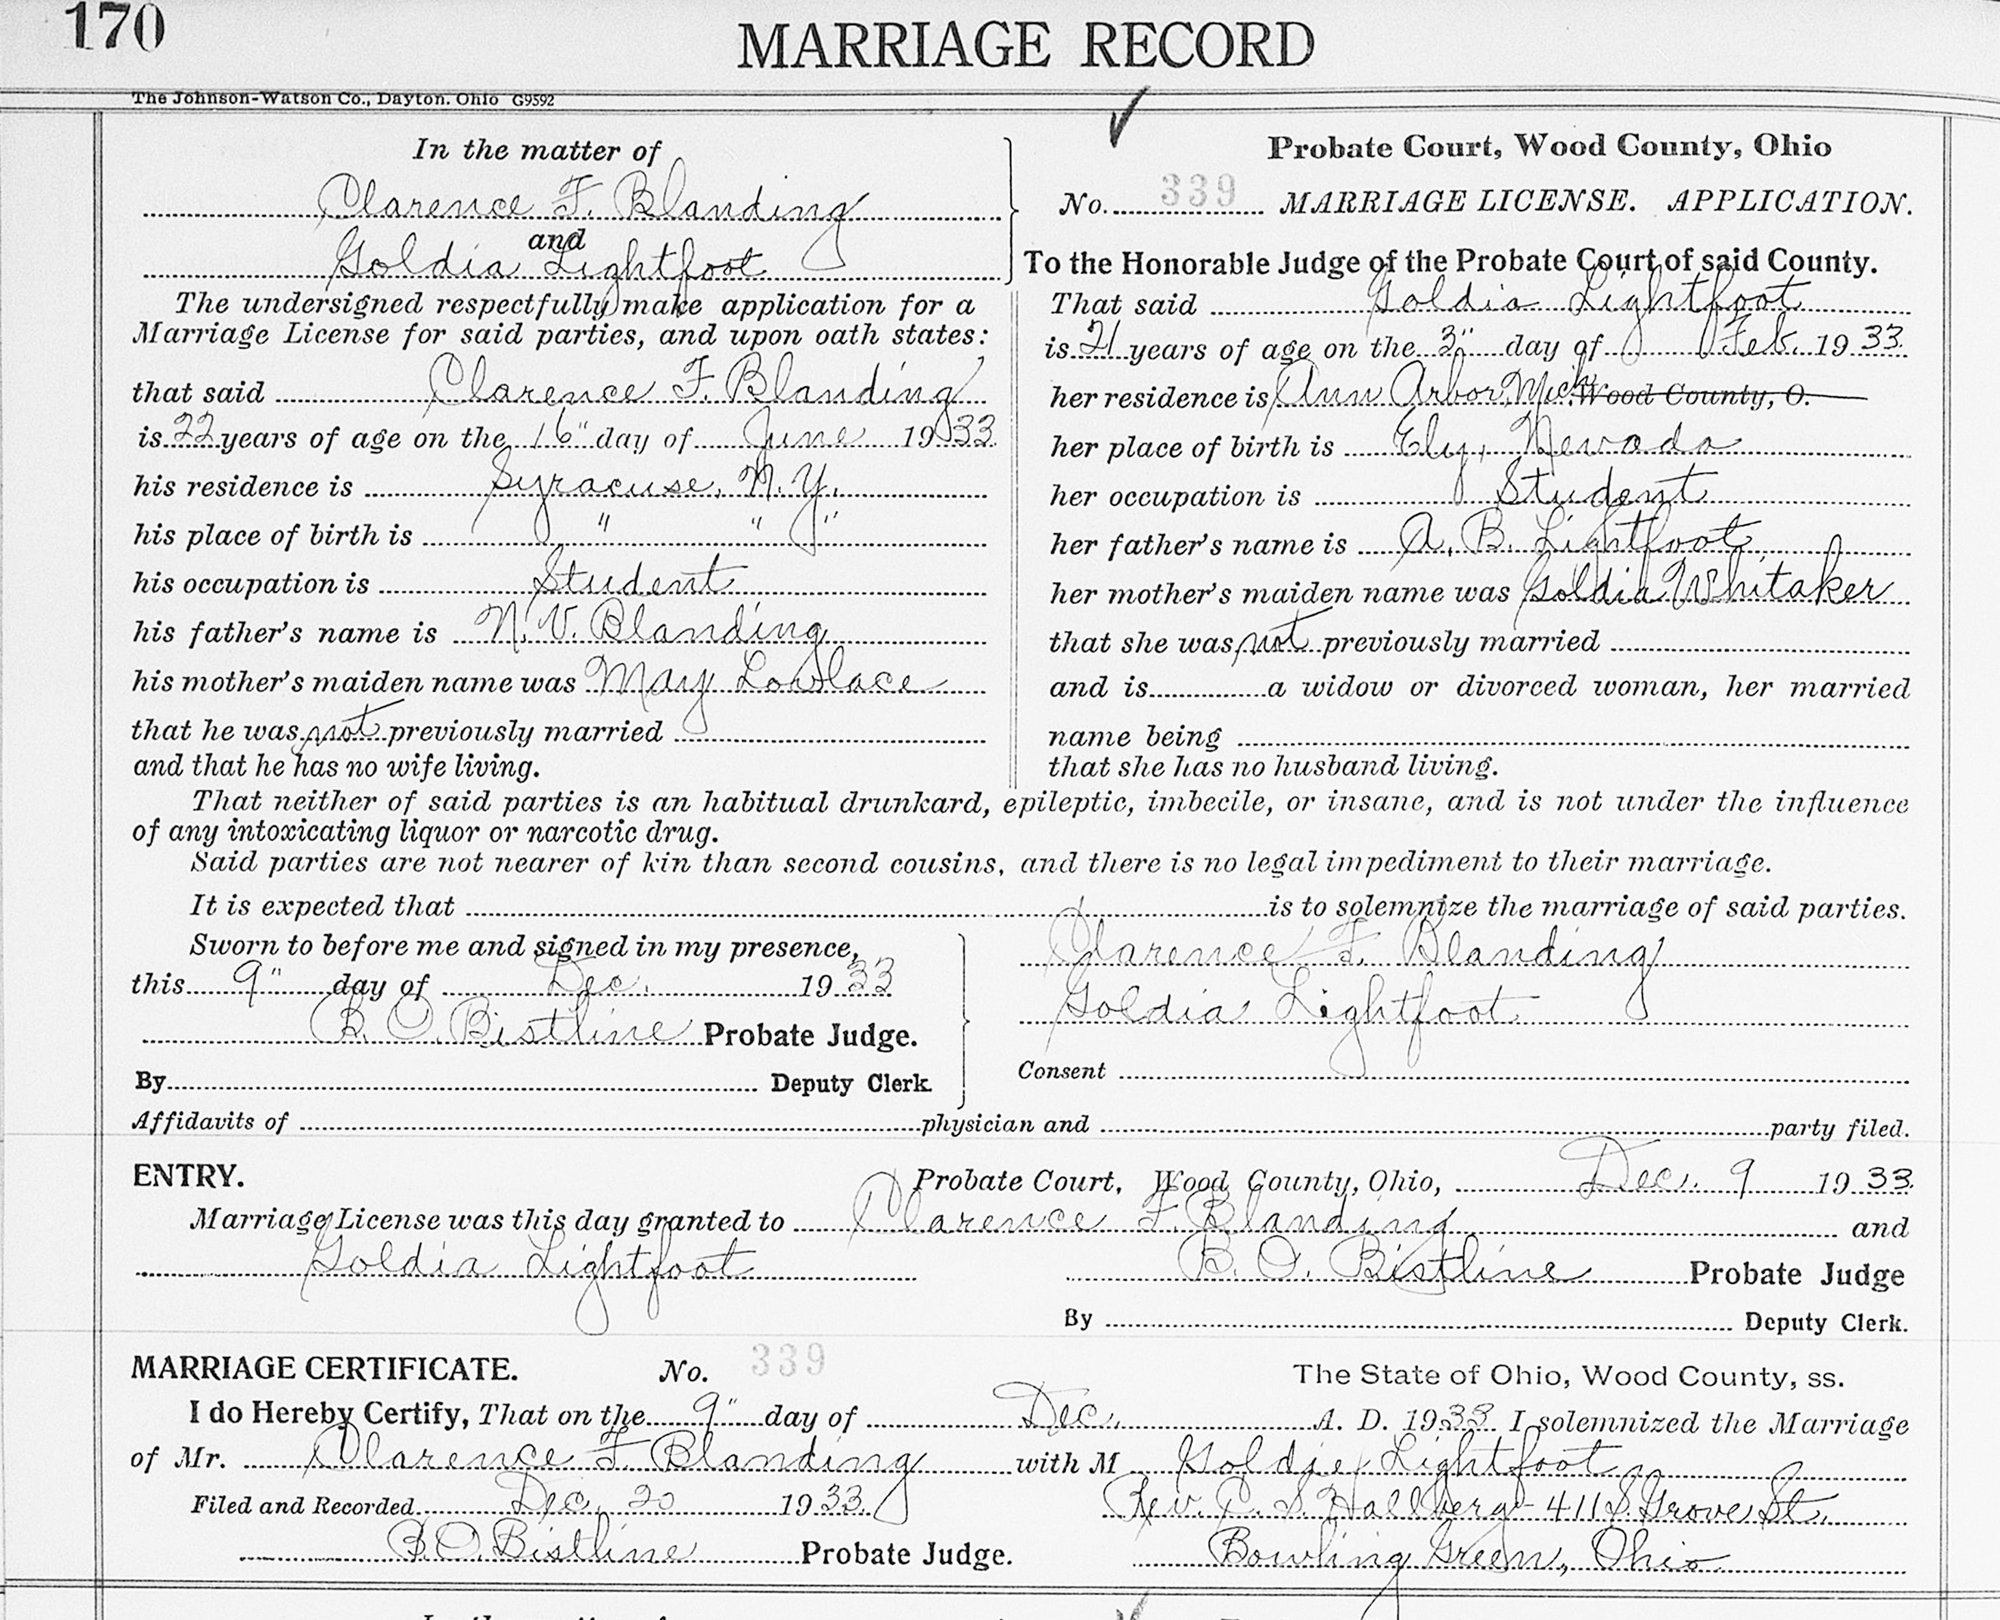 170
MARRIAGE RECORD
The Johnson-Watson Co., Dayton. Ohio G9592
In the matter of
Clarence F. Blanding
and
Goldia Lightfoot
The undersigned respectfully make application for a
Marriage License for said parties, and upon oath states:
that said Clarence F. Blanding
is 22 years of age on the 16" day of June 1933
his residence is Syracuse, N.Y.
his place of birth is " " "
his occupation is Student
his father's name is N.V. Blanding
his mother's maiden name was May Lovlace
that he was not previously married
and that he has no wife living.
Probate Court, Wood County, Ohio
No. 339 MARRIAGE LICENSE. APPLICATION.
To the Honorable Judge of the Probate Court of said County.
That said Goldia Lightfoot
is 21 years of age on the 3" day of Feb. 1933
her residence is Ann Arbor, Mich. Wood County, O.
her place of birth is Ely, Nevada
her occupation is Student
her father's name is A. B. Lightfoot
her mother's maiden name was Goldia Whitaker
that she was not previously married
and is a widow or divorced woman, her married
name being
that she has no husband living.
That neither of said parties is an habitual drunkard, epileptic, imbecile, or insane, and is not under the influence
of any intoxicating liquor or narcotic drug.
Said parties are not nearer of kin than second cousins, and there is no legal impediment to their marriage.
It is expected that is to solemnize the marriage of said parties.
Sworn to before me and signed in my presence,
this 9" day of Dec. 1933
B. O. Bistline Probate Judge.
By Deputy Clerk.
Clarence F. Blanding
Goldia Lightfoot
Consent
Affidavits of physician and party filed.
ENTRY. Probate Court, Wood County, Ohio, Dec. 9 1933.
Marriage License was this day granted to Clarence F. Blanding and
Goldia Lightfoot B. O. Bistline Probate Judge
By Deputy Clerk.
MARRIAGE CERTIFICATE. No. 339 The State of Ohio, Wood County, ss.
I do Hereby Certify, That on the 9" day of Dec. A. D. 1933 I solemnized the Marriage
of Mr. Clarence F. Blanding with M Goldie Lightfoot
Filed and Recorded Dec. 20 1933. Rev. C. S. Hallberg - 411 S. Grove St.
B.O. Bistline Probate Judge. Bowling Green, Ohio